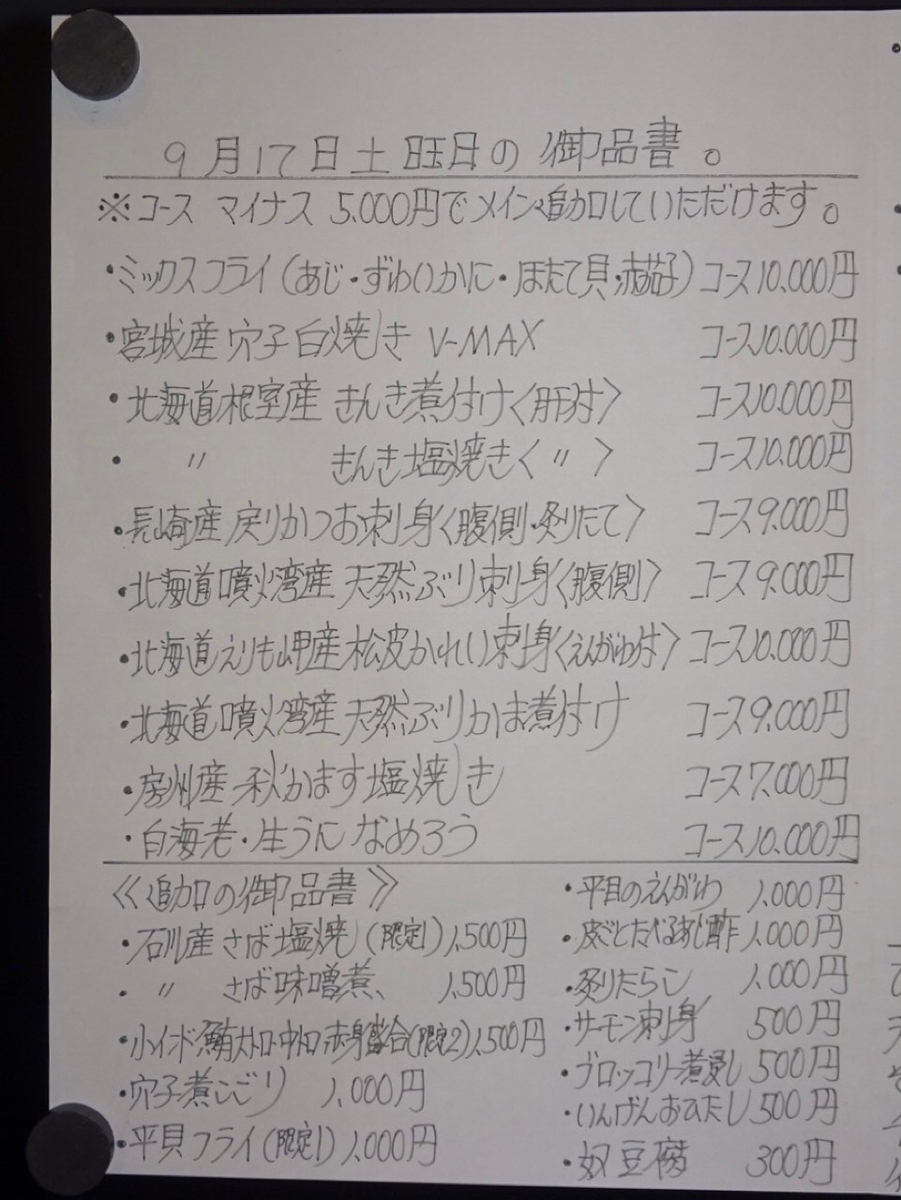 9月17日土曜日の御品書。
※コース マイナス 5.000円でメイン追加していただけます。
・ミックスフライ(あじ・ずわいかに・ほたて貝・赤茄子) コース10.000円
・宮城産 穴子白焼き V-MAX コース10.000円
・北海道根室産 きんき煮付け〈肝付〉 コース10.000円
・ 〃 きんき塩焼き〈 〃 〉 コース10.000円
・長崎産 戻りかつお刺身〈腹側・炙りたて〉 コース9.000円
・北海道噴火湾産 天然ぶり刺身〈腹側〉 コース9.000円
・北海道えりも岬産 松皮かれい刺身〈えんがわ付〉 コース10.000円
・北海道噴火湾産 天然ぶりかま煮付け コース9.000円
・房州産 秋かます塩焼き コース7.000円
・白海老・生うに なめろう コース10.000円
《追加の御品書》
・石川産 さば塩焼(限定1) 1,500円
・ 〃 さば味噌煮、 1,500円
・インド鮪大トロ・中トロ・赤身盛合(限定2) 1,500円
・穴子煮こごり 1,000円
・平貝フライ(限定1) 1,000円
・平目のえんがわ 1,000円
・皮ごとたべるあじ酢 1,000円
・炙りたらこ 1,000円
・サーモン刺身 500円
・ブロッコリー煮浸し 500円
・いんげんおひたし 500円
・奴豆腐 300円